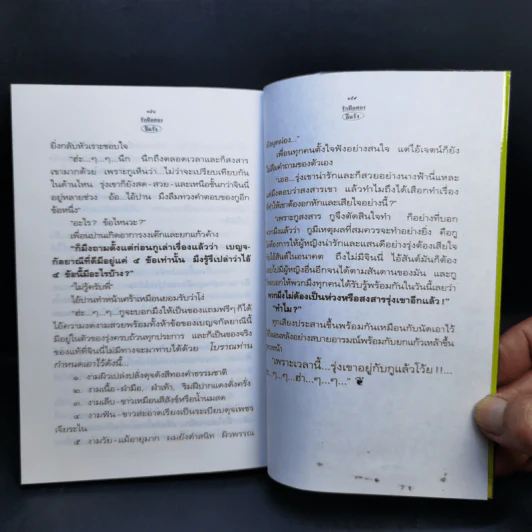 รักลือสอง
ลิ่มรัก
ยิ่งกลับหัวเราะชอบใจ
"ฮ่ะ...ๆ...ๆ...นึก นึกถึงตลอดเวลาและก็สงสาร
เขามากด้วย เพราะกูเห็นว่า...ไม่ว่าจะเปรียบเทียบกัน
ในด้านไหน รุ่งเขาก็ยังสด-สวย-และเหนือชั้นกว่าจินนี่
อยู่หลายช่วง อ้อ...ไอ้ป่าน มึงลืมทวงคำตอบของกูอีก
ข้อหนึ่ง"
"อะไร? ข้อไหนวะ?"
เพื่อนป่านเกิดอาการงงเด๊กและยกแก้วค้าง
"ก็มึงถามตั้งแต่ก่อนกูเล่าเรื่องแล้วว่า เบญจ-
กัลยาณีที่ดีมีอยู่แค่ ๕ ข้อเท่านั้น มึงรู้รึเปล่าว่าไอ้
๕ ข้อนี้มีอะไรบ้าง?"
"ไม่รู้ครับพี่"
ไอ้ป่านทำหน้าเศร้าเหมือนยอมรับว่าโง่
"ฮ่ะ...ๆ...ๆ...กูจะบอกมึงให้เป็นของแถมฟรีๆ ก็ได้
ไอ้ความงดงามสวยพร้อมทั้งห้าข้อของเบญจกัลยาณีนี้
มีอยู่ในตัวของรุ่งครบถ้วนทุกประการ และก็เป็นของจริง
ของแท้ที่จินนี่ไม่มีทางจะมาทาบได้ด้วย โบราณท่าน
กำหนดเอาไว้ดังนี้...
๑. งามผิวเปล่งปลั่งดุจดังสีทองคำธรรมชาติ
๒. งามเนื้อ-ฝ่ามือ, ฝ่าเท้า, ริมฝีปากแดงดั่งครั่ง
๓. งามเล็บ-ขาวเหมือนสีสังข์หรือน้ำนมสด
๔. งามฟัน-ขาวสะอาดเรียงเป็นระเบียบดุจเพชร
เจียระไน
๕. งามวัย-แม้อายุมาก ผมยังดำสนิท ผิวพรรณ
รักลือสอง
ลิ่มรัก
เพื่อนทุกคนตั้งใจฟังอย่างสนใจ แต่ไอ้เจตน์ก็ยัง
คำถามของตัวเอง
"เออ...รุ่งเขาน่ารักและก็สวยอย่างนางฟ้านี่แหละ
ตอบว่าสงสารเขา แล้วทำไมถึงได้เลือกทำเรื่อง
ให้เขาต้องอกหักและเสียใจอย่างนี้?"
"เพราะกูสงสาร กูจึงตัดสินใจทำ ก็อย่างที่บอก
แล้วว่า กูมีเหตุผลที่สมควรจะทำอย่างยิ่ง คือกู
ต้องการให้ผู้หญิงน่ารักและแสนดีอย่างรุ่งต้องเสียใจ
ไอ้สันต์ในอนาคต ถึงไม่มีจินนี่ ไอ้สันต์มันก็ต้อง
ไปมีผู้หญิงอื่นอีกจนได้ตามสันดานของมัน และกู
บอกให้พวกมึงทุกคนได้รับรู้พร้อมกันในวันนี้เลยว่า
พวกมึงไม่ต้องเป็นห่วงหรือสงสารรุ่งเขาอีกแล้ว!"
"ทำไม?"
ทุกเสียงประสานขึ้นพร้อมกันเหมือนกับนัดเอาไว้
หลังอย่างสบายอารมณ์พร้อมกับยกแก้วเหล้าขึ้น
"เพราะเวลานี้....รุ่งเขาอยู่กับกูแล้วโว้ย!!...
ๆ...ๆ...ฮ่า...ๆ...ๆ..."